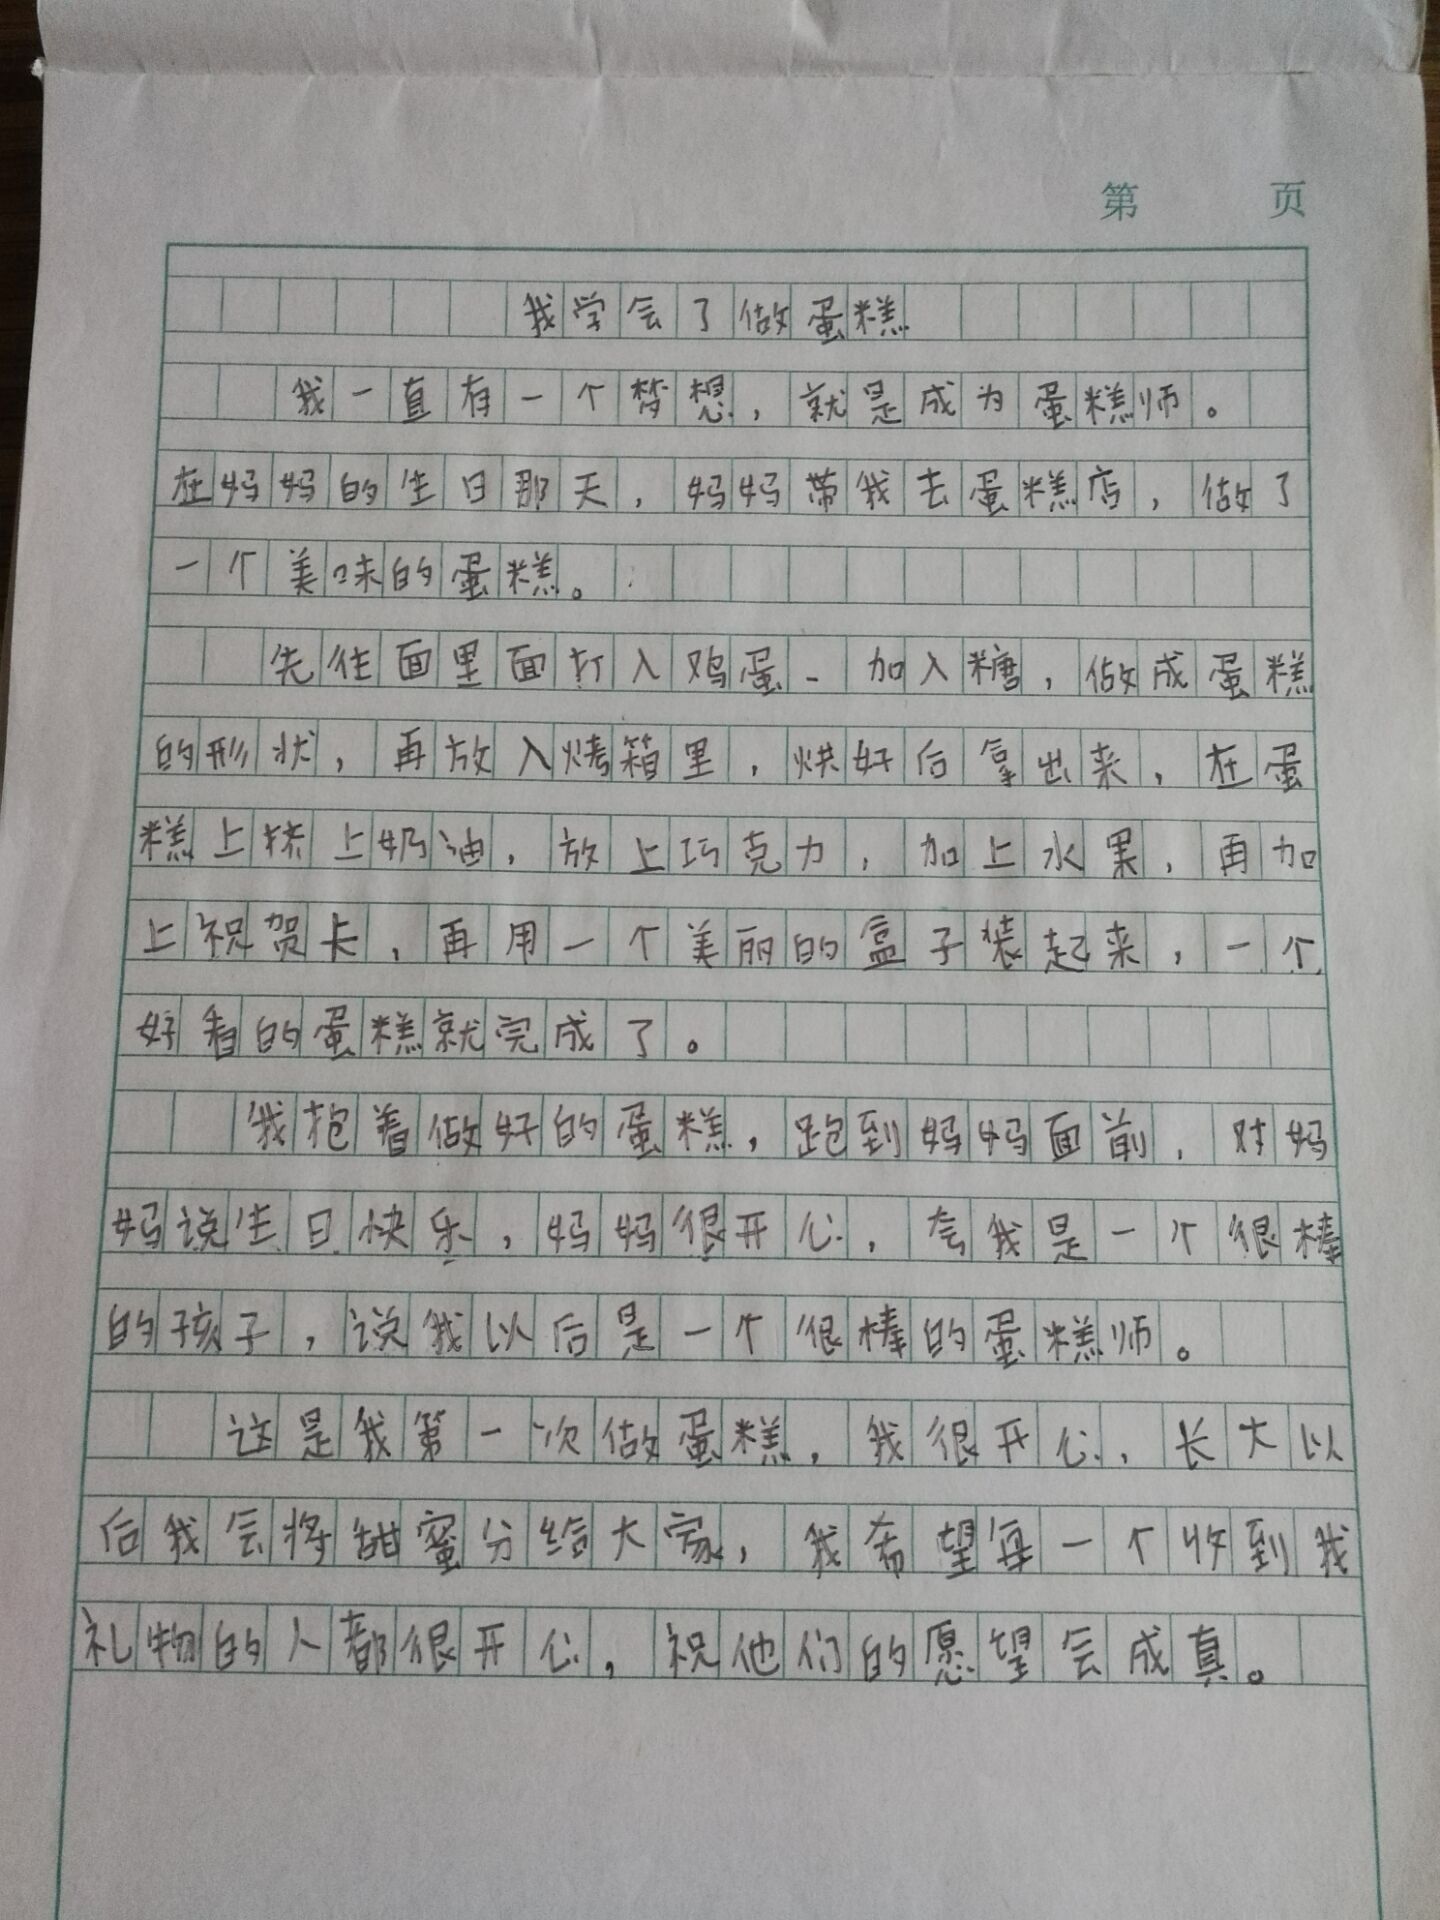 第 页
我学会了做蛋糕
我一直有一个梦想，就是成为蛋糕师。
在妈妈的生日那天，妈妈带我去蛋糕店，做了
一个美味的蛋糕。
先往面里面打入鸡蛋、加入糖，做成蛋糕
的形状，再放入烤箱里，烘好后拿出来，在蛋
糕上挤上奶油，放上巧克力，加上水果，再加
上祝贺卡，再用一个美丽的盒子装起来，一个
好看的蛋糕就完成了。
我抱着做好的蛋糕，跑到妈妈面前，对妈
妈说生日快乐，妈妈很开心，夸我是一个很棒
的孩子，说我以后是一个很棒的蛋糕师。
这是我第一次做蛋糕，我很开心，长大以
后我会将甜蜜分给大家，我希望每一个收到我
礼物的人都很开心，祝他们的愿望会成真。